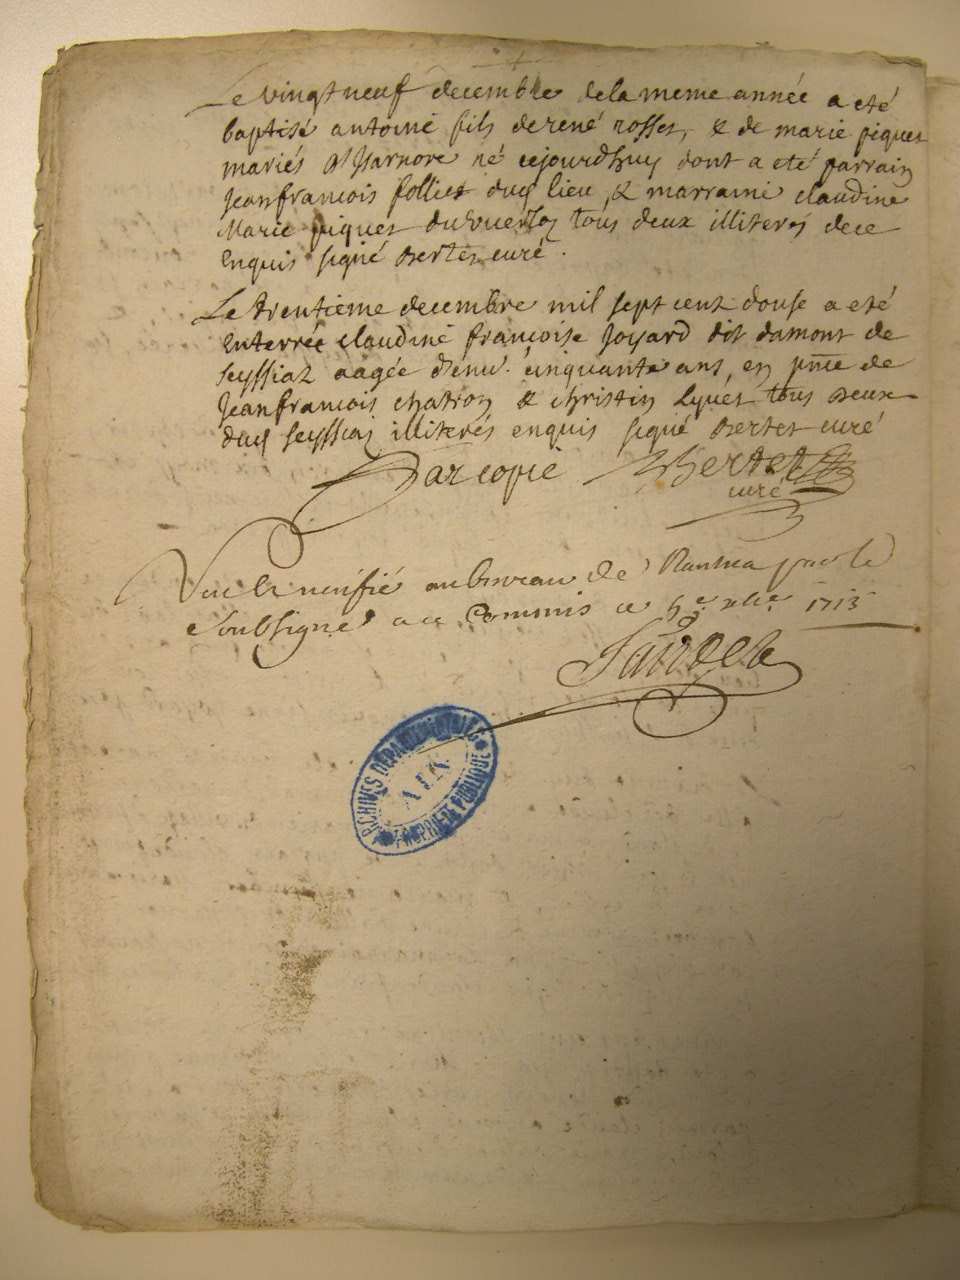 Le vingt neuf decembre de la meme année a eté
baptisé antoine fils de rené rosset, & de marie piquet
mariés né cejourdhuy dont a eté parrain
Jeanfrancois folliet dud lieu, & marraine claudine
Marie piquet tous deux illiterés de ce
enquis signé Bertet curé.
Le trentieme decembre mil sept cent douse a eté
enterrée claudine françoise Joyard dit damont de
seyssiat aagée d'env. cinquante ans, en pnce de
Jeanfrancois chatron & christin tous deux
dud seyssiat illiterés enquis signé Bertet curé
Par copie Bertet
curé
Vue & verifié au bureau de Nantua par le
soubsigné commis ce 1713
ARCHIVES DÉPARTEMENTALES
AIN
PROPRIÉTÉ PUBLIQUE